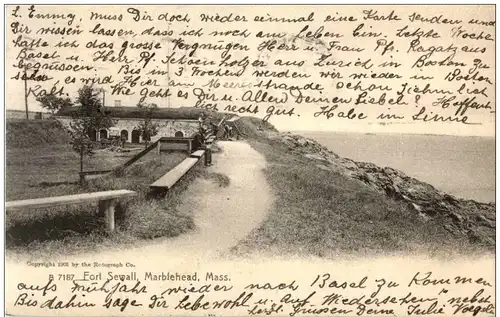 L. Emmy, muss Dir doch wieder einmal eine Karte senden und
Dir wissen lassen, dass ich noch am leben bin. Letzte Woche
hatte ich das grosse Vergnügen Herr u. Frau Pf. Ragatz aus
Basel u. Herr Pf. Schoenholzer aus Zürich in Boston zu
begrüssen. Bis in 3 Wochen werden wir wieder in Boston
sein, es wird hier am Meeresstrande, schon ziehmlich
kalt. Wie geht es Dir u. Allen Deinen Liebe? Hoffent.
recht gut. Habe im Sinne
Copyright 1905 by the Rotograph Co.
B 7187 Fort Sewall, Marblehead, Mass.
aufs Frühjahr wieder nach Basel zu Kommen
Bis dahin sage Dir Lebewohl u. Auf "Wiedersehen" nebst
herzl. Grüssen Deine Julie Vogel